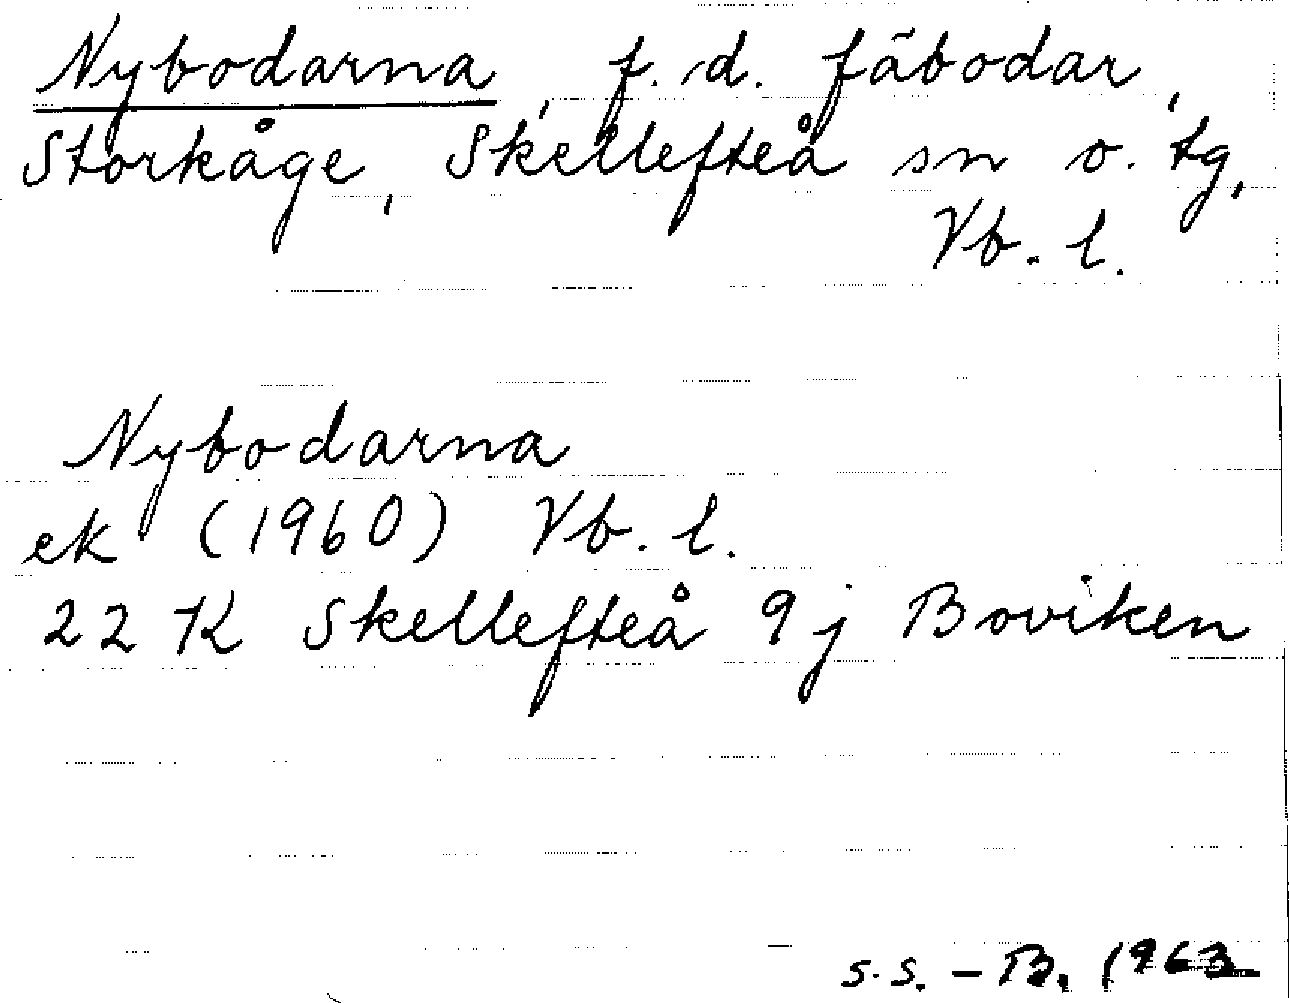 Nybodarna, f. d. fäbodar,
Storkåge, Skellefteå sn o. tg,
Vb. l.
Nybodarna
ek (1960) Vb. l.
22 K Skellefteå 9 j Boviken
s.s. – B. 1963